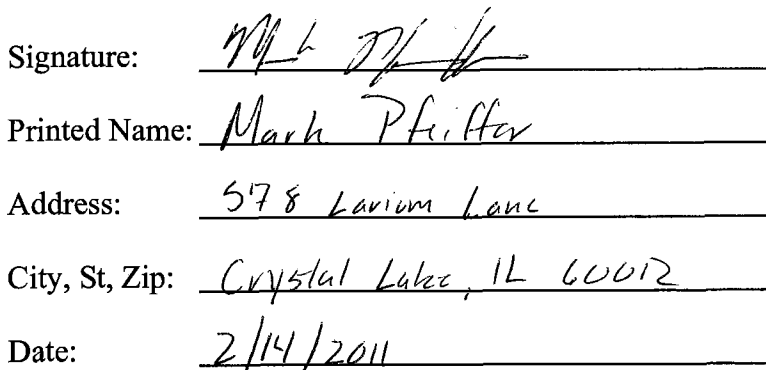 Signature:
Printed Name: Mark Pfeiffer
Address: 578 Larium Lane
City, St, Zip: Crystal Lake, IL 60012
Date: 2/14/2011